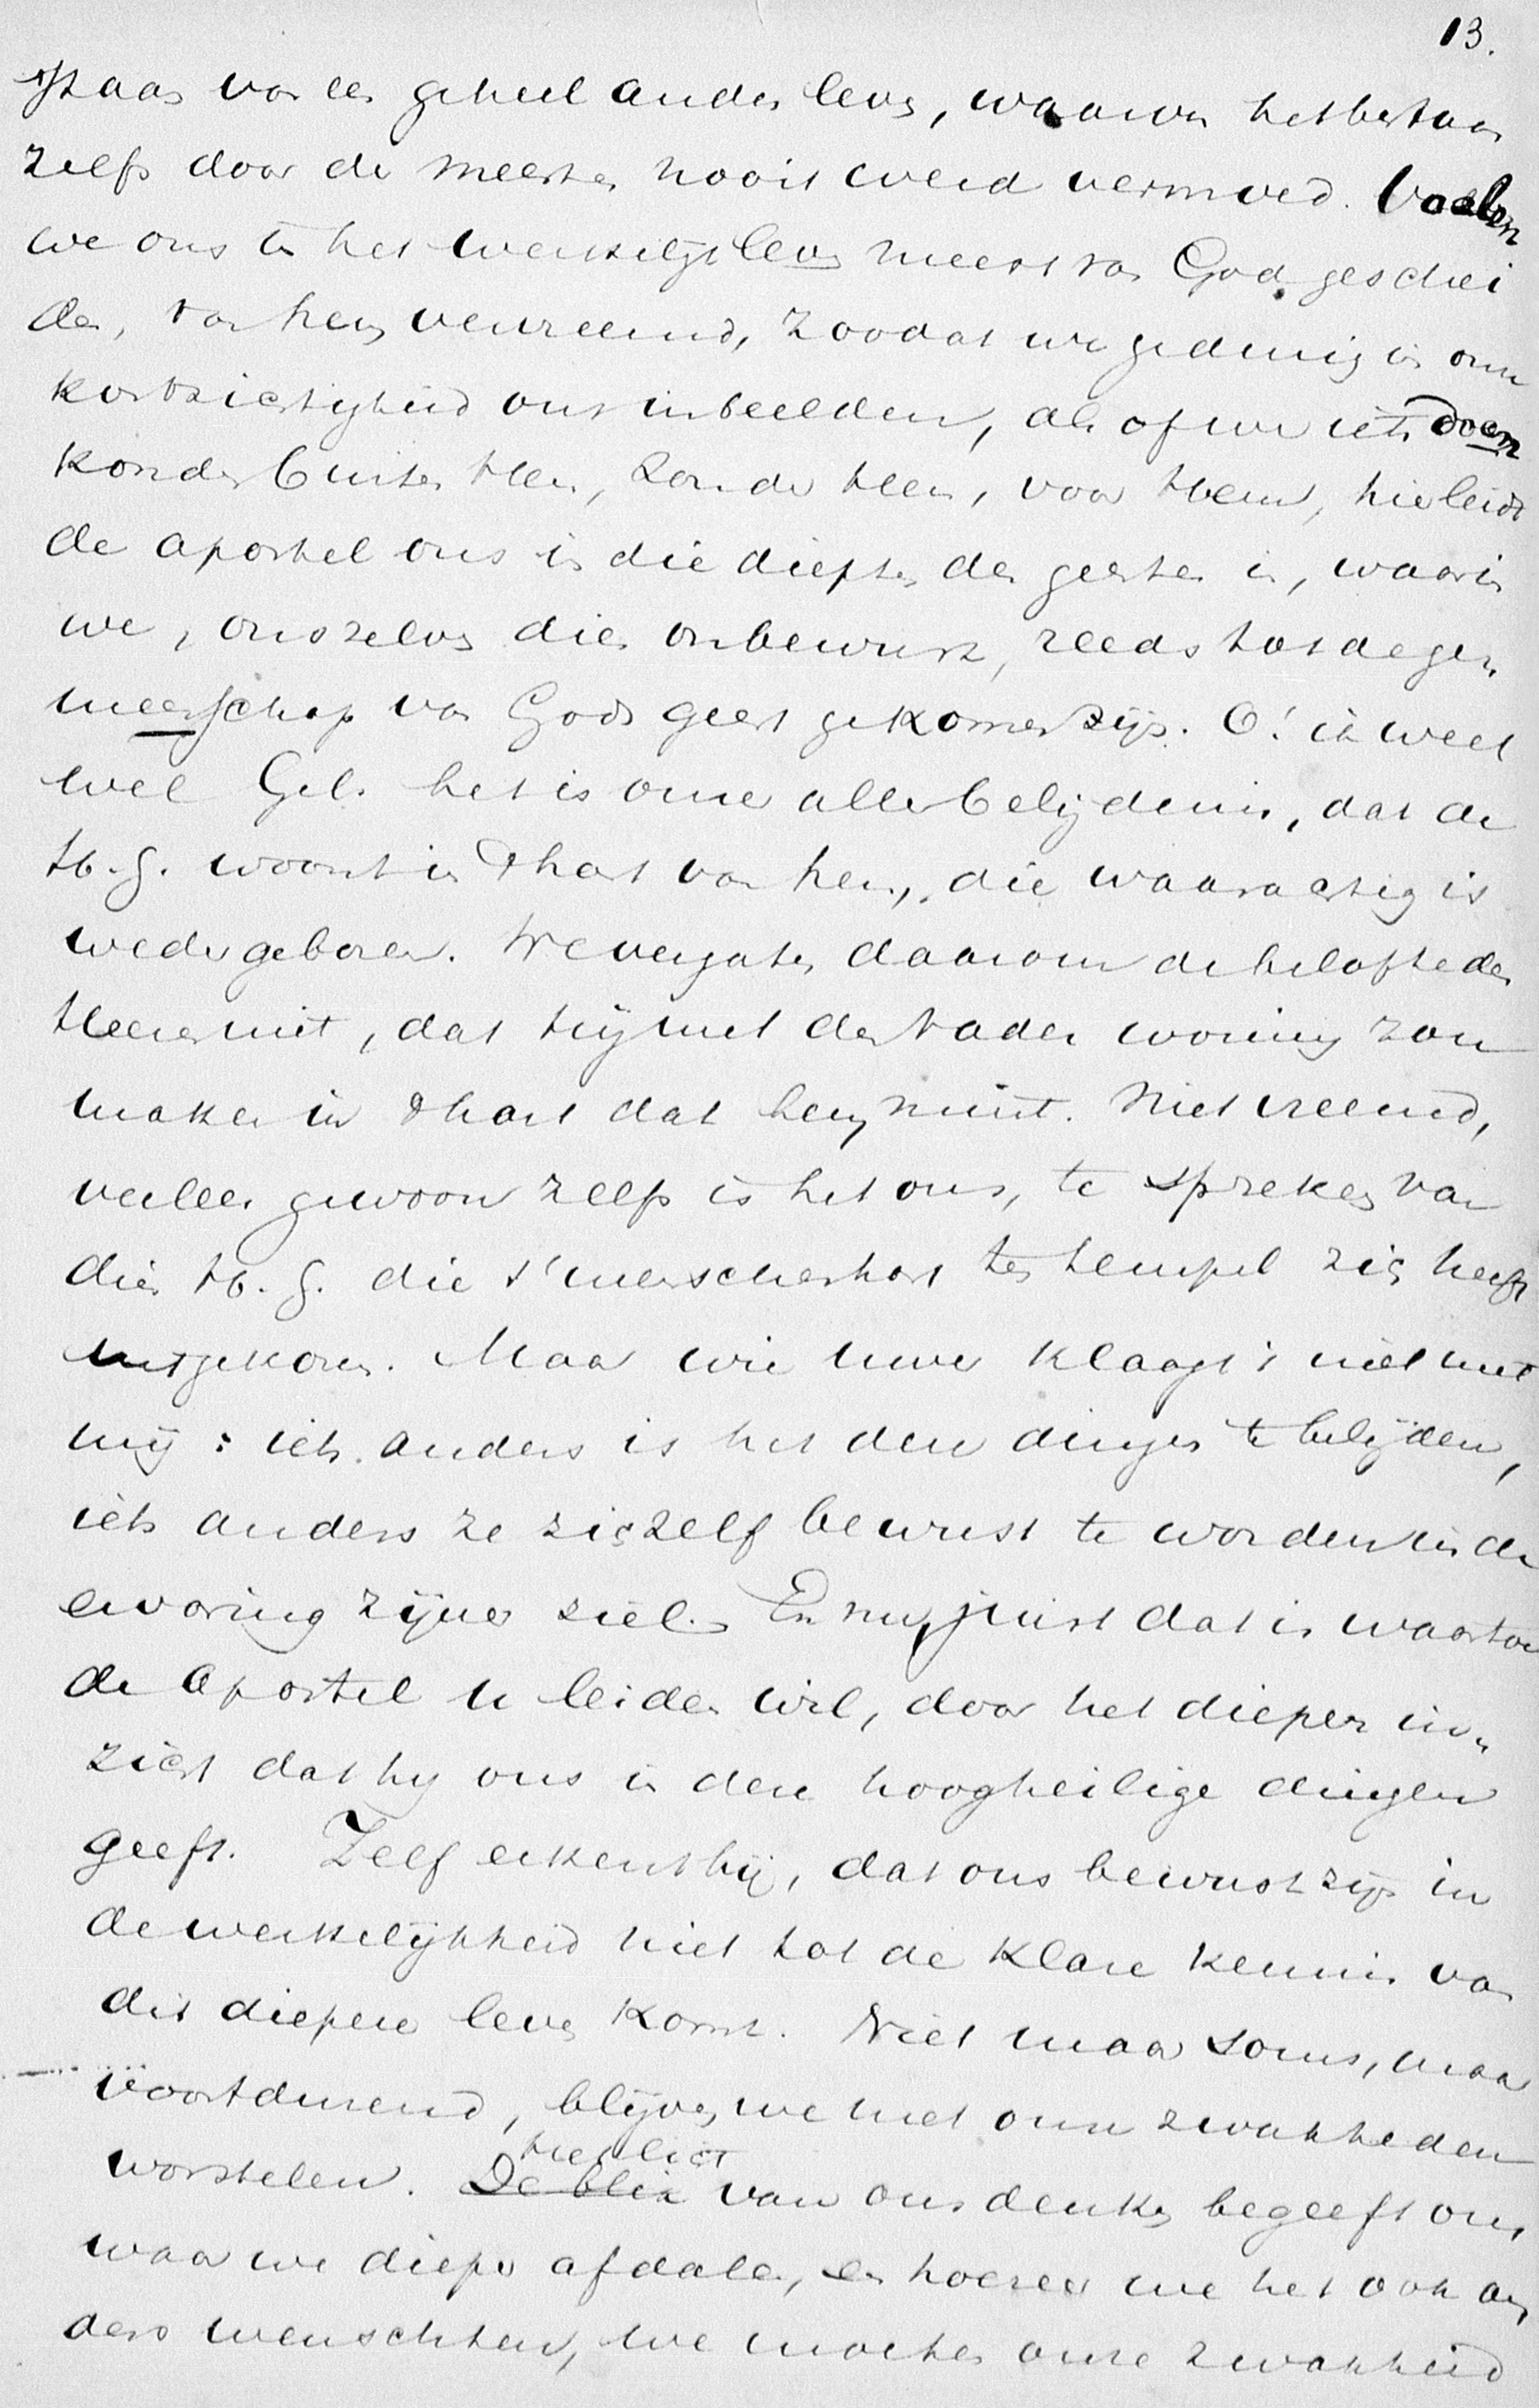 13.
staan van een geheel ander leven, waarvan het bestaan
zelfs door de meesten nooit werd vermoed. Voelen
we ons in het werkelijk leven meest van God geschei
den, van hem vervreemd, zoodat we gedurig in onze
kortzichtigheid ons inbeelden, als of we iets doen
konden buiten Hem, zonder Hem, voor Hem, hier leidt
de apostel ons in die diepten des geestes in, waarin
we, onszelven dies onbewust, reeds tot de gen
meenschap van Gods geest gekomen zijn. O! ik weet
wel Gel. het is onze aller belijdenis, dat de
H. G. woont in 't hart van hem, die waarachtig is
wedergeboren. We vergaten daarom de belofte des
Heeren niet, dat hij met den Vader woning zou
maken in 't hart dat hem mint. Niet vreemd,
veeleer gewoon zelfs is het ons, te spreken van
dien H. G. die 's menschen hart ten tempel zich heeft
uitgekoren. Maar wie uwer klaagt 't niet met
mij: iets anders is het deze dingen te belijden,
iets anders ze zichzelf bewust te worden in de
ervaring zijner ziel. En nu, juist dat is waartoe
de apostel u leiden wil, door het dieper in„
zicht dat hij ons in deze hoogheilige dingen
geeft. Zelf erkent hij, dat ons bewustzijn in
de werkelijkheid niet tot de klare kennis van
dit diepere leven komt. Niet maar soms, maar
voortdurend, blijven we met onze zwakheden
worstelen. De blik het licht van ons denken begeeft ons,
waar we dieper afdalen, en hoezeer we het ook an
ders wenschten, we moeten onze zwakheid